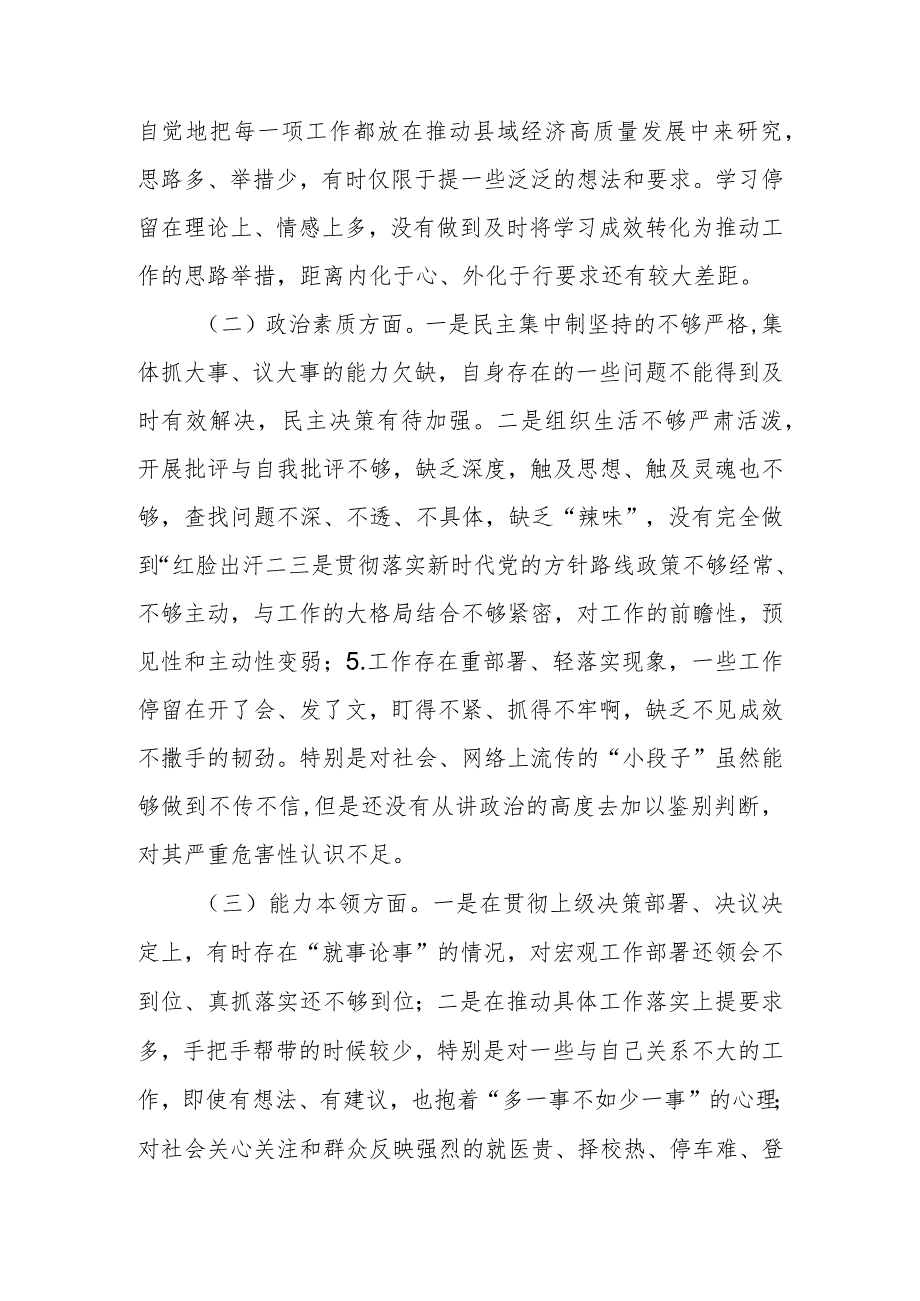 自觉地把每一项工作都放在推动县域经济高质量发展中来研究，
思路多、举措少，有时仅限于提一些泛泛的想法和要求。学习停
留在理论上、情感上多，没有做到及时将学习成效转化为推动工
作的思路举措，距离内化于心、外化于行要求还有较大差距。
（二）政治素质方面。一是民主集中制坚持的不够严格,集
体抓大事、议大事的能力欠缺，自身存在的一些问题不能得到及
时有效解决，民主决策有待加强。二是组织生活不够严肃活泼，
开展批评与自我批评不够，缺乏深度，触及思想、触及灵魂也不
够，查找问题不深、不透、不具体，缺乏“辣味”，没有完全做
到“红脸出汗二三是贯彻落实新时代党的方针路线政策不够经常、
不够主动，与工作的大格局结合不够紧密，对工作的前瞻性，预
见性和主动性变弱；5.工作存在重部署、轻落实现象，一些工作
停留在开了会、发了文，盯得不紧、抓得不牢啊，缺乏不见成效
不撒手的韧劲。特别是对社会、网络上流传的“小段子”虽然能
够做到不传不信,但是还没有从讲政治的高度去加以鉴别判断，
对其严重危害性认识不足。
（三）能力本领方面。一是在贯彻上级决策部署、决议决
定上，有时存在“就事论事”的情况，对宏观工作部署还领会不
到位、真抓落实还不够到位；二是在推动具体工作落实上提要求
多，手把手帮带的时候较少，特别是对一些与自己关系不大的工
作，即使有想法、有建议，也抱着“多一事不如少一事”的心理；
对社会关心关注和群众反映强烈的就医贵、择校热、停车难、登